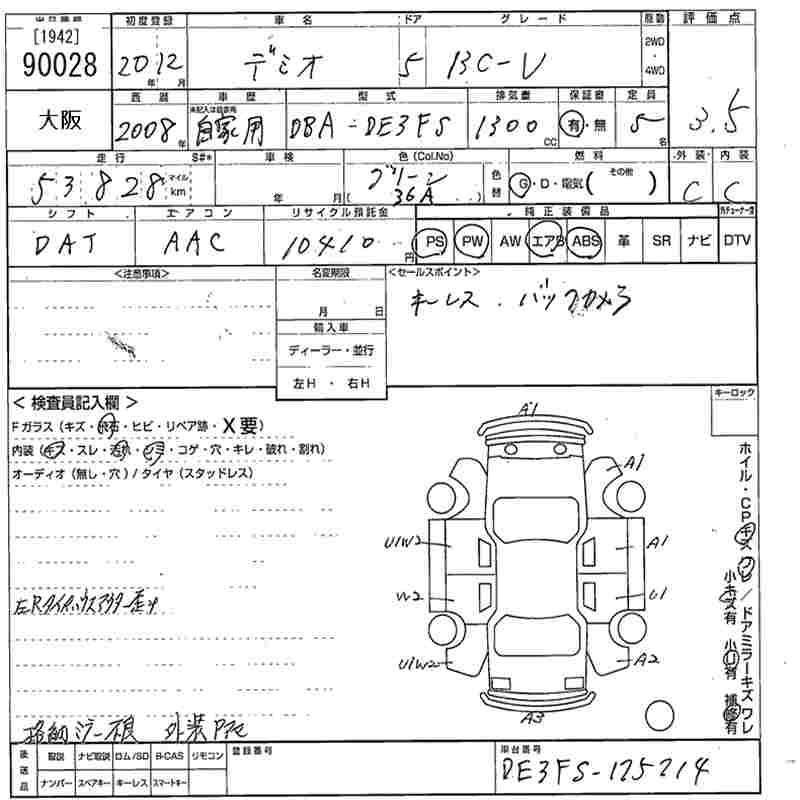 [1942]
90028
大阪
初度登録 車名 ドア グレード 原動 評価点
2012 年 月 デミオ 5 13C-V 2WD ・ 4WD 3.5
西暦 車歴 型式 排気量 保証書 定員
未記入は自家用
2008年 自家用 DBA-DE3FS 1300CC 有・無 5名
走行 S#* 車検 色(Col.No) 燃料 外装 内装
53828 マイル km 年 月 グリーン 36A ( ) 色替 G・D・電気( その他 ) C C
シフト エアコン リサイクル預託金 純正装備品
DAT AAC 10410円 PS PW AW エアB ABS 革 SR ナビ DTV
<注意事項> 名変期限 <セールスポイント>
月 日 キーレス. バックカメラ
輸入車
ディーラー・並行
左H ・ 右H
キーロック
< 検査員記入欄 >
Fガラス(キズ・飛石・ヒビ・リペア跡・X要)
内装(キズ・スレ・汚れ・シミ・コゲ・穴・キレ・破れ・割れ)
オーディオ(無し・穴)/タイヤ(スタッドレス)
A1
A1
U1W2 A1
W2 U1
U1W2 A2
A3
ホイル・CPキズ ワレ/ドアミラーキズ ワレ
小キズ有 小U有 補修有
左Rタイヤハウスアウター歪み
格納ジャー根 外装
後送品 取説 ナビ取説 ロム/SD B-CAS リモコン 登録番号 車台番号
ナンバー スペアキー キーレス スマートキー DE3FS-125214